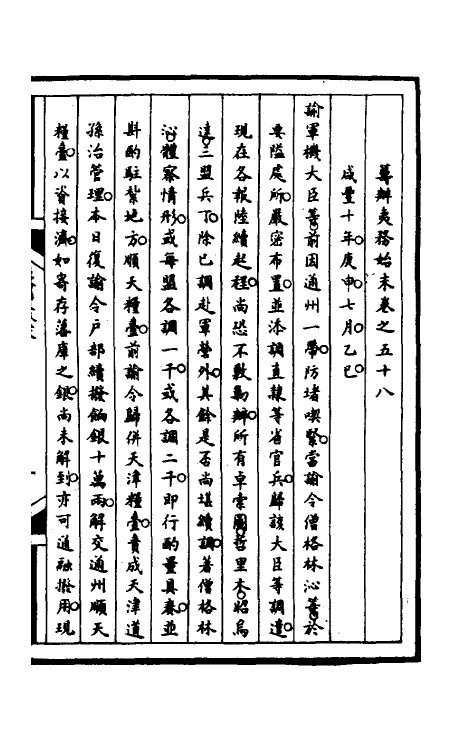 籌辦夷務始末卷之五十八
咸豐十年庚申七月乙巳
諭軍機大臣等前因通州一帶防堵喫緊當諭令僧格林沁等於
要隘處所嚴密布置並添調直隸等省官兵歸該大臣等調遣
現在各報陸續起程尚恐不敷勦辦所有卓索圖哲里木昭烏
達三盟兵丁除已調赴軍營外其餘是否尚堪續調著僧格林
沁體察情形或每盟各調一千或各調二千即行酌量具奏並
斟酌駐紮地方順天糧臺前諭令歸併天津糧臺責成天津道
孫治管理本日復諭令戶部續撥餉銀十萬兩解交通州順天
糧臺以資接濟如寄存藩庫之銀尚未解到亦可通融撥用現